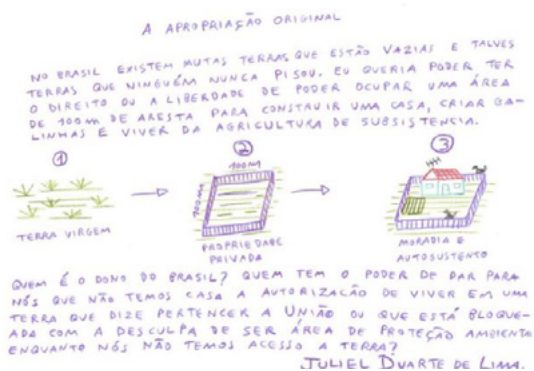 A APROPRIAÇÃO ORIGINAL
NO BRASIL EXISTEM MUTAS TERRAS QUE ESTÃO VAZIAS E TALVES
TERRAS QUE NINGUÉM NUNCA PISOU. EU QUERIA PODER TER
O DIREITO OU A LIBERDADE DE PODER OCUPAR UMA ÁREA
DE 100m DE ARESTA PARA CONSTRUIR UMA CASA, CRIAR GA-
LINHAS E VIVER DA AGRICULTURA DE SUBSISTENCIA.
1 2 3
100m
100m
TERRA VIRGEM
PROPRIEDADE
PRIVADA
MORADIA E
AUTOSUSTENTO
QUEM É O DONO DO BRASIL? QUEM TEM O PODER DE DAR PARA
NÓS QUE NÃO TEMOS CASA A AUTORIZAÇÃO DE VIVER EM UMA
TERRA QUE DIZE PERTENCER A UNIÃO OU QUE ESTÁ BLOQUE-
ADA COM A DESCULPA DE SER ÁREA DE PROTEÇÃO AMBIENTE
ENQUANTO NÓS NÃO TEMOS ACESSO A TERRA?
JULIEL DUARTE DE LIMA.